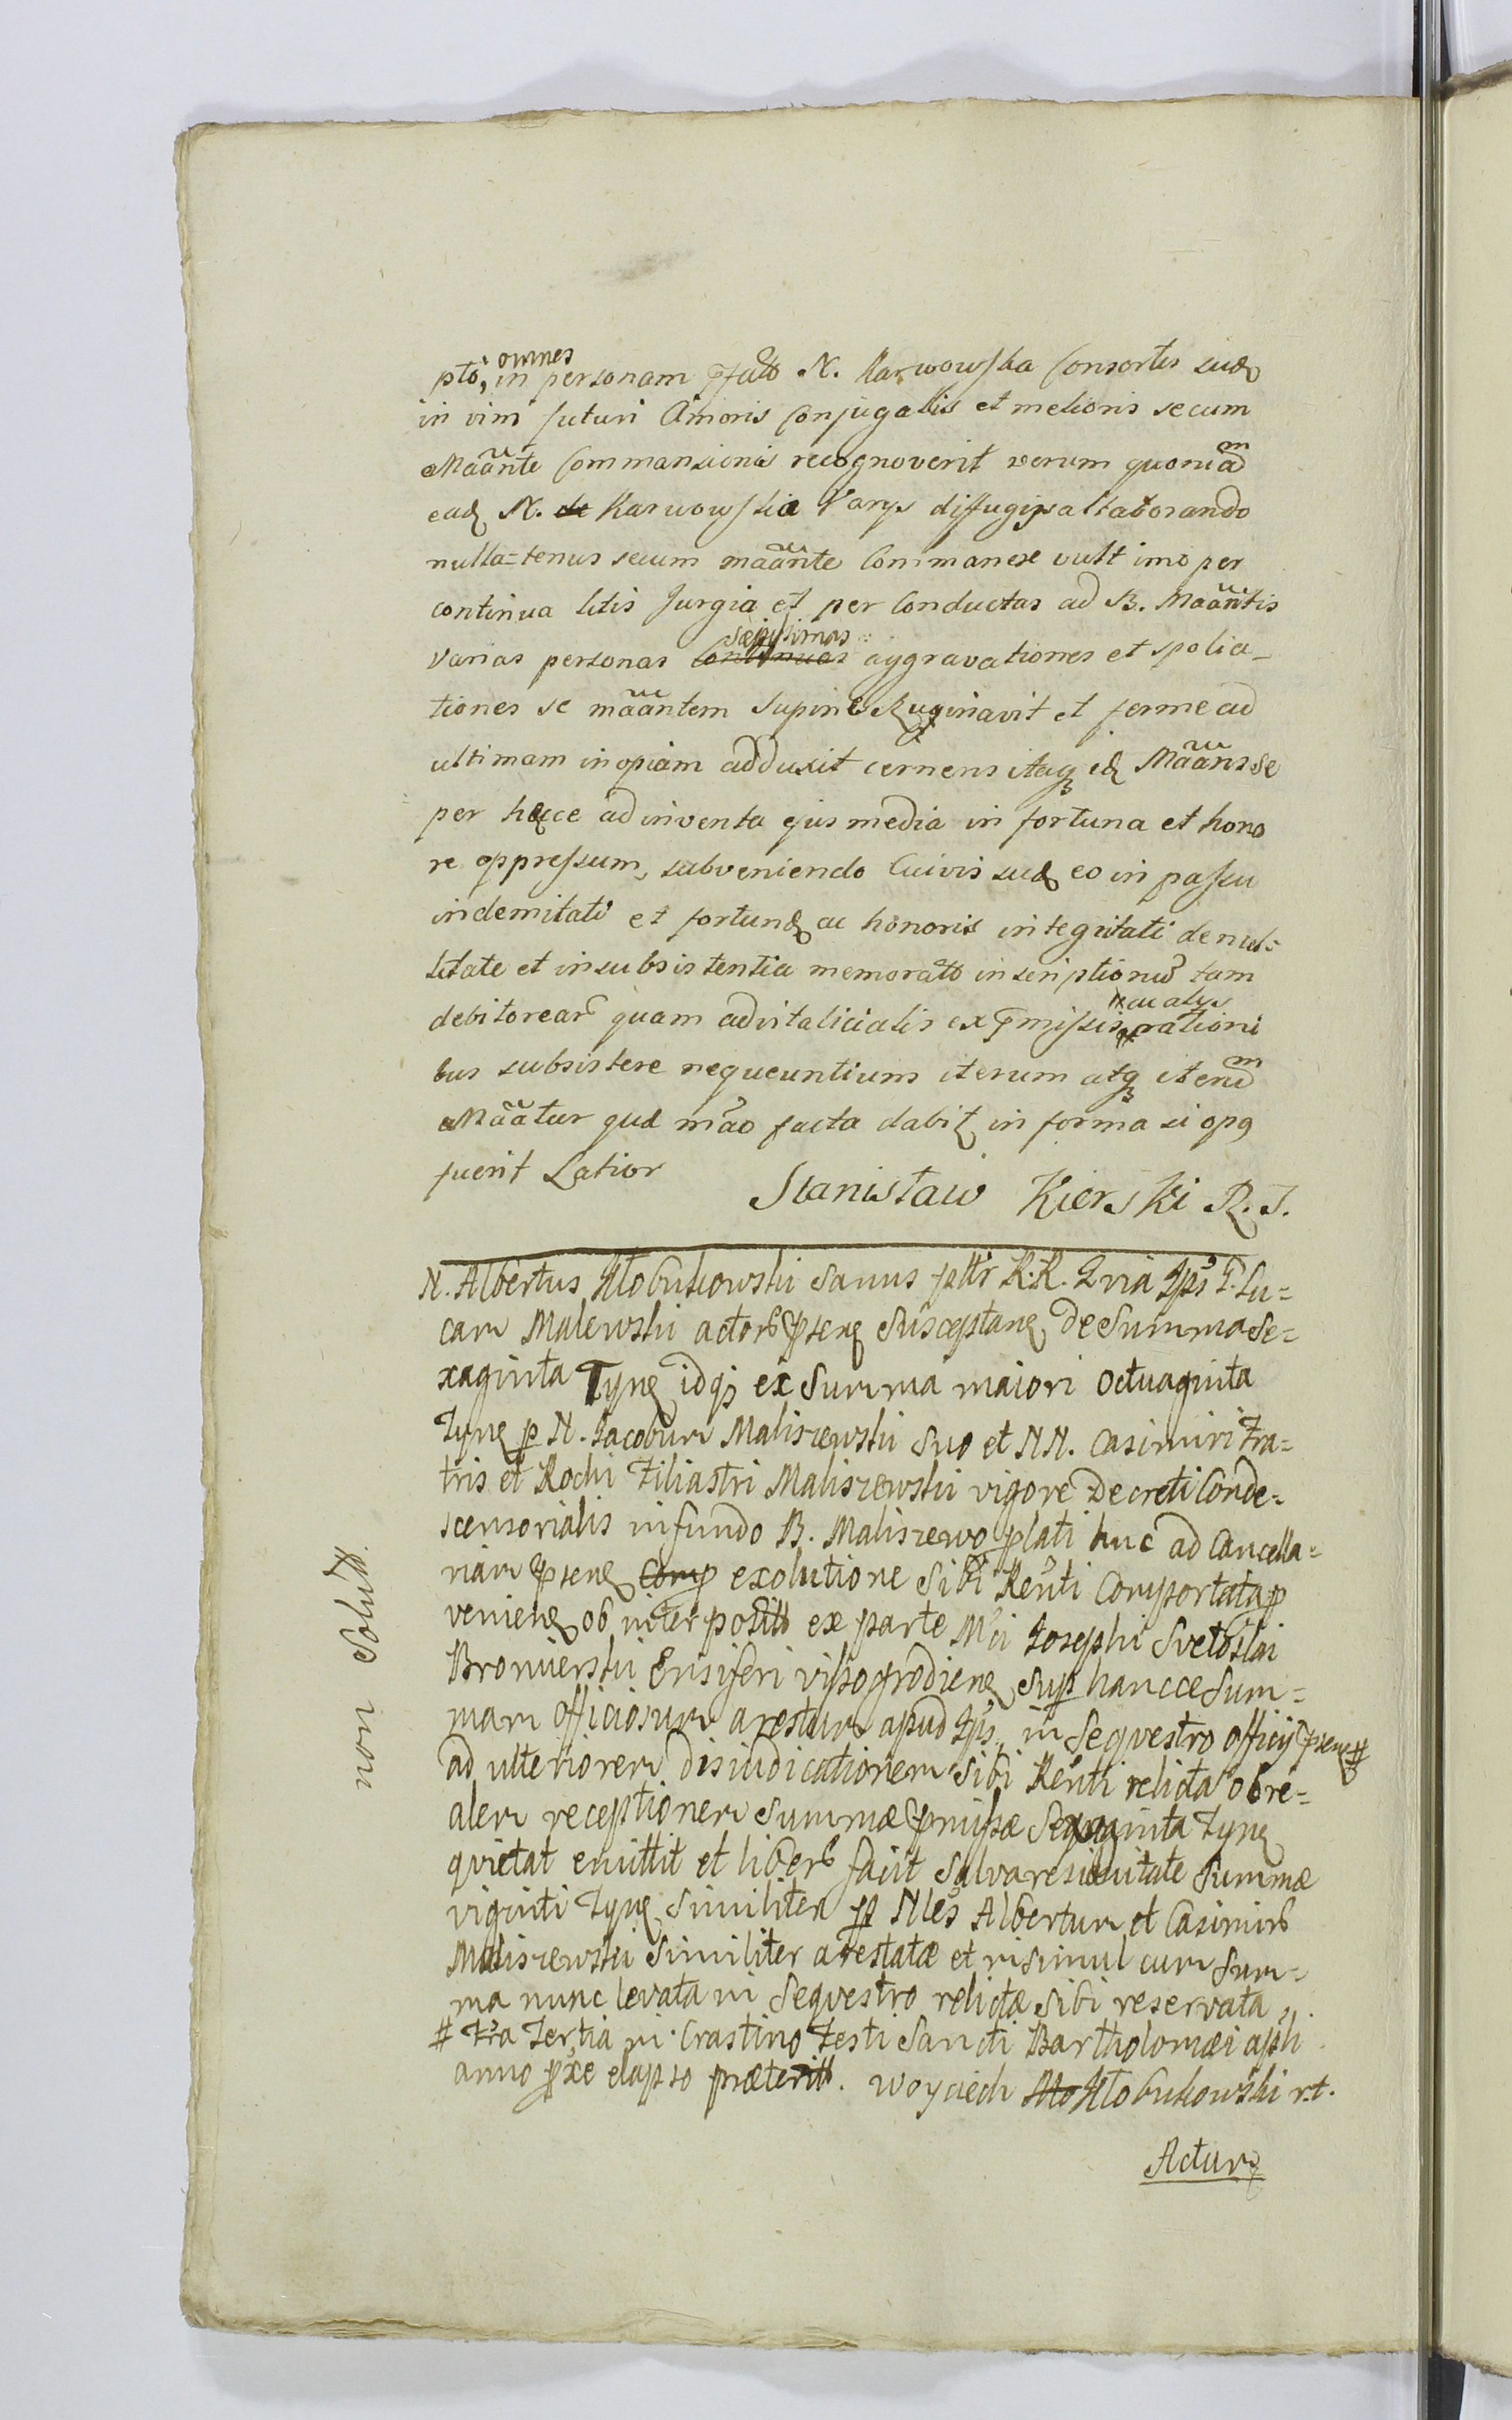 omnes
pto, in personam pfatt N. Karwowska Consortis suæ
in vim futuri Amoris Conjugalis et melioris secum
Maãnte Commansionis recognoverit verum quoniam
ead N. de Karwowska Varys diffugys allaborando
nulla=tenus secum maãnte Commanere vult imo per
continua litis Jurgia et per Conductas ad B. Maãntis
sæpissimas
varias personas Continuas aggravationes et spolia_
tiones se maãntem supine Ruginavit et ferme ad
ultimam inopiam adduxit cernens itaq id Maãns se
per hæcce adinventa ejus media in fortuna et hono
re oppressum, subveniendo Cuivis suæ eo in passu
indemitati et fortunæ ac honoris integritati de nul=
litate et insubsistentia memoratt inscriptionu tam
ac alys
debitorear quam advitalicialis ex pmissis rationi
bus subsistere nequeuntium iterum atq iterum
Maãtur quæ mão facta dabit in forma si opg
fuerit Latior
Stanisław Kierski R. J.
N. Albertus Kłobukowski sanus pttr R.R. Qvia Ips P. Lu=
cam Malewski actor psen susceptan de Summa se=
xaginta Tyn idq ex Summa maiori octuaginta
Tyn p N. Jacobum Maliszewski suo et NN. Casimiri Fra=
tris et Rochi Filiastri Maliszewski vigore Decreti Conde=
scensorialis in fundo B. Maliszewo plati huc ad Cancella=
riam psen Comp exolutione sibi Renti Comportata p
venien ob interpositt ex parte Mci Josephi Svetoslai
Bronierski Ensiferi vissogrodien sup hancce Sum=
mam officiosum arestum apud Ips in Seqvestro officy psen #
ad ulteriorem disiudicationem sibi Renti relicta ob re=
alem receptionem Summæ pmissæ Sexaginta Tyn
qvietat emittit et liber facit salva residuitate Summæ
viginti Tyn similiter p Nles Albertum et Casimir
Maliszewski similiter arestatæ et insimul cum Sum=
ma nunc levata in Seqvestro relictæ sibi reservata
# Fra Tertia in Crastino Festi Sancti Bartholomæi apli
anno pxe elapso præteritt. Woyciech Kło Kłobukowski r.t.
Actum
non solutt.